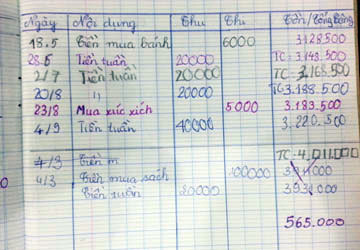 Ngày Nội dung Thu Chi Tồn/Tổng cộng
18.5 Tiền mua bánh 6000 3.128.500
28.5 Tiền tuần 20000 TC = 3.148.500
2/7 Tiền tuần 20000 TC = 3.168.500
20/8 11 20000 TC = 3.188.500
23/8 Mua xúc xích 5000 3.183.500
4/9 Tiền tuần 40000 3.220.500
TC = 4.011.000
4/3 Tiền m
4/3 Tiền mua sách 100000
Tiền tuần 20000
565.000